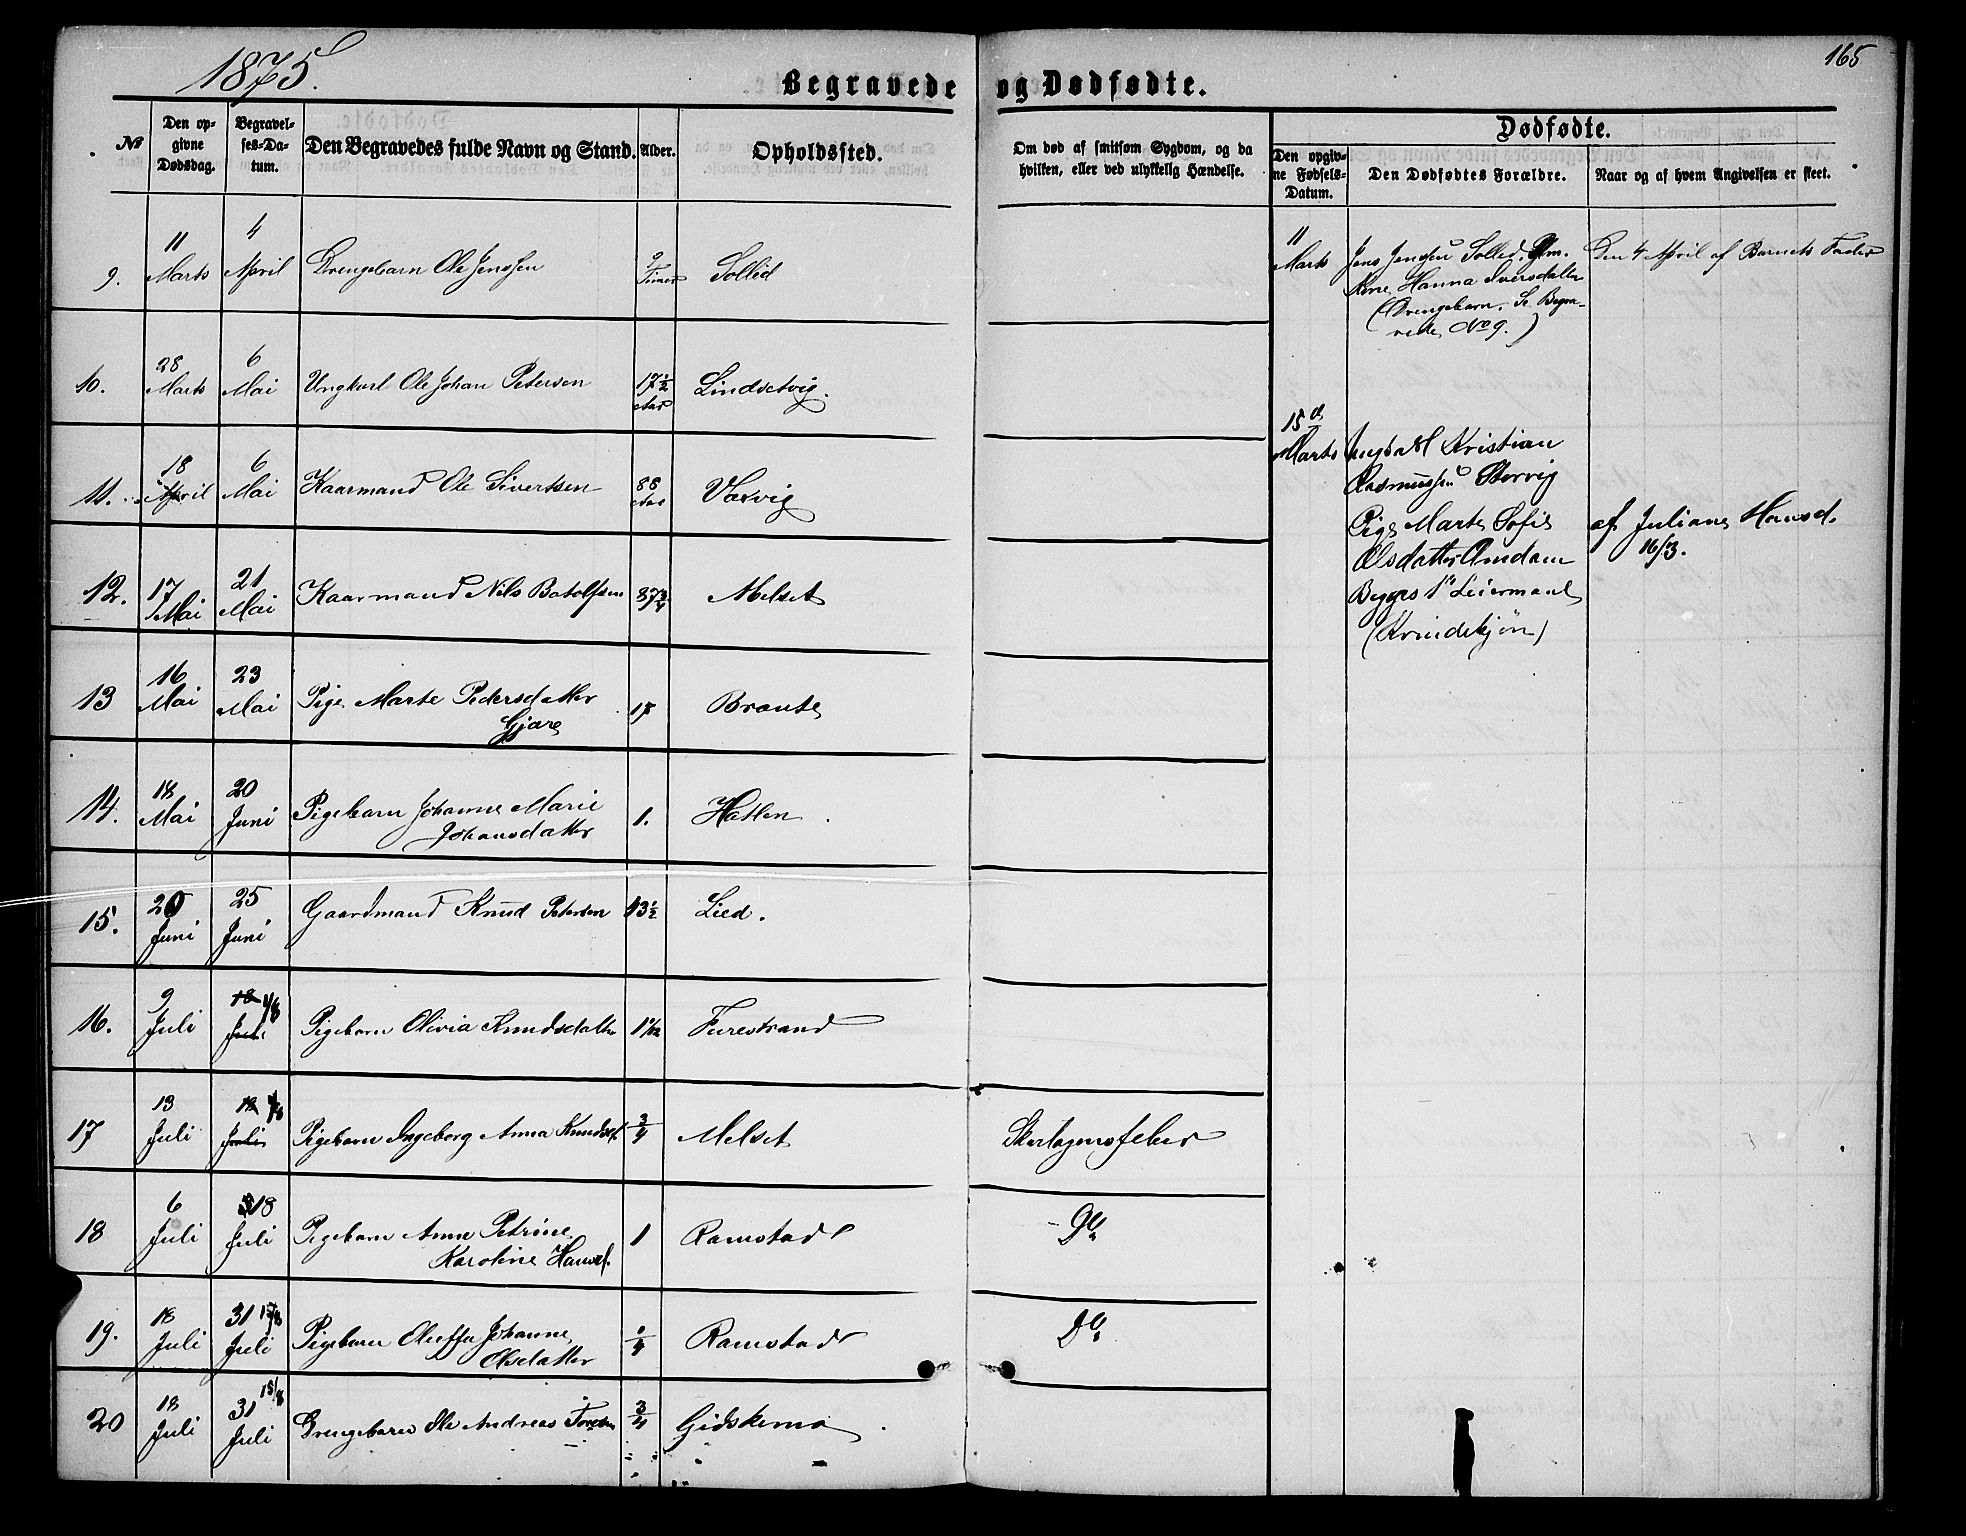 1875.
165
Begravede og Dødfødte.
No
Den opgivne Dødsdag.
Begravelses-Datum.
Den Begravedes fulde Navn og Stand.
Alder.
Opholdssted.
Om død af smitsom Sygdom, og da hvilken, eller ved ulykkelig Hændelse.
Dødfødte.
Den opgivne Fødsels-Datum.
Den Dødfødtes Forældre.
Naar og af hvem Angivelsen er skeet.
9. 11 Marts 4 April Drengebarn Ole Jenssen 2 Timer Sollid
10. 28 Marts 6 Mai Ungkarl Ole Johan Petersen 17½ Aar Lindsetvig.
11. 18 April 6 Mai Kaarmand Ole Sivertsen 88 Aar Varvig
12. 17 Mai 21 Mai Kaarmand Nils Botolfsen 87¾ Melset
13 16 Mai 23 Mai Pige Marte Pedersdatter
Gjøre 17 Brauts
14. 18 Mai 20 Juni Pigebarn Johanne Marie
Johansdatter 1. Hatlen
15. 20 Juni 25 Juni Gaardmand Knud Petersen 43½ Lied.
16. 9 Juli 18 Juli 1/8 Pigebarn Olivia Knudsdatter 1 1/12 Furestrand
17 13 Juli 18 Juli 1/8 Pigebarn Ingeborg Anna Knudsd. ¾ Melset Skarlagensfeber
18 6 Juli 18 Juli Pigebarn Anne Petrine
Karoline Hansd. 1 Ramstad Do
19. 18 Juli 31 Juli 15/8 Pigebarn Oleffa Johanne
Olsdatter ¼ Ramstad Do
20 18 Juli 31 Juli 15/8 Drengebarn Ole Andreas ¾ Gidskemo
11 Marts
Jens Jenssen Sollid. Gm.
Kone Hanna Iversdatter
(Drengebarn. Se Begra-
vede No 9.)
Den 4 April af Barnets Fader
15de Marts
Kristian
Rasmussen Storvig
Pige Marte Sofie
Olsdatter Amdam
Begges 1ste Leiermaal
(Kvindekjøn)
af Juliane Hansd.
16/3.